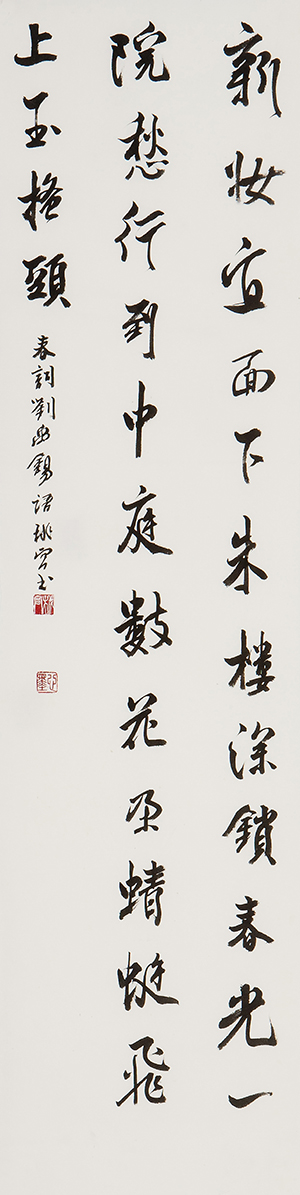 新妝宜面下朱樓深鎖春光一
院愁行到中庭數花朶蜻蜓飛
上玉搔頭
春詞劉禹錫語